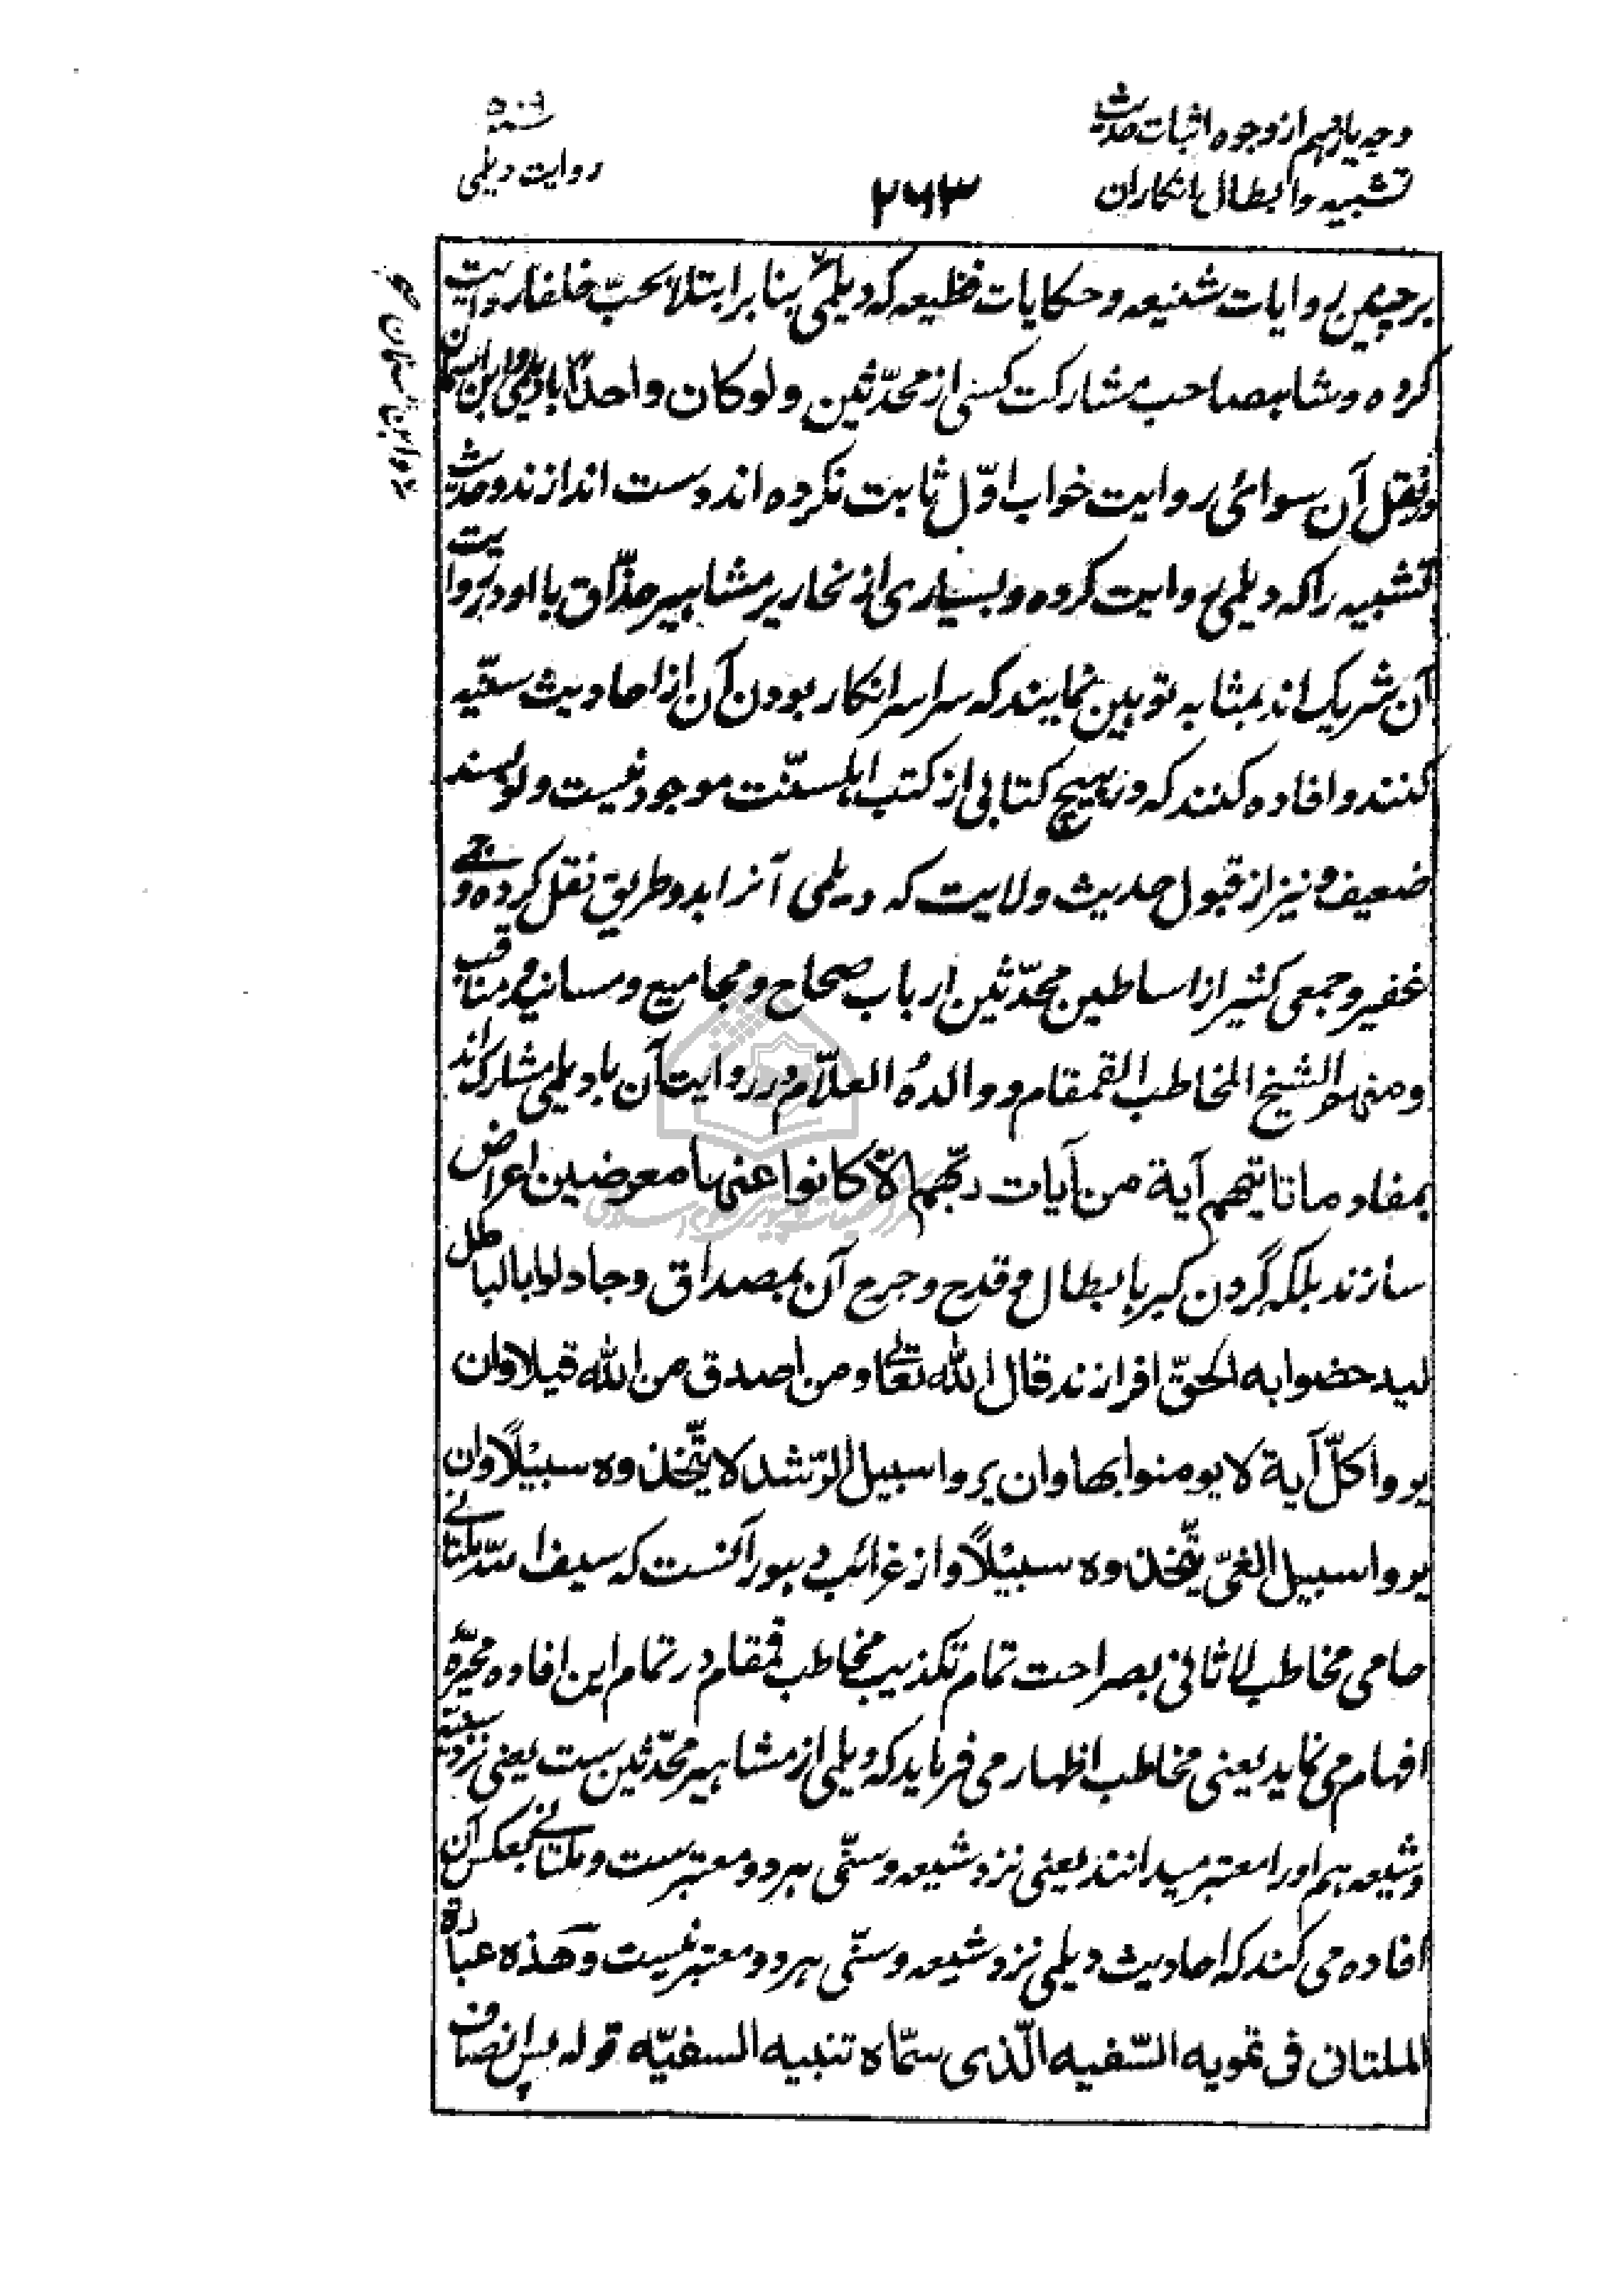 وجه یازدهم از وجوه اثبات حدیث
تشبیه و ابطال انکاران
۲۶۳
سنه ۵۰۹
روایت دیلمی
بر چنین روایات شنیعه و حکایات فظیعه که دیلمی بنابر ابتلا بحبّ خلفا روایت
کرده و شاهصاحب مشارکت کسی از محدّثین ولو کان واحدًا با دیلمی و ابن السمان
در نقل آن سوائی روایت خواب اوّل ثابت نکرده اند دست اندازند و حدیث
تشبیه را که دیلمی روایت کرده و بسیاری از نحاریر مشاهیر حذّاق با او در روایت
آن شریک اند بمثابه توهین نمایند که سراسر انکار بودن آن از احادیث سنّیه
کنند و افاده کنند که در هیچ کتابی از کتب اهلسنّت موجود نیست ولو بسند
ضعیف و نیز از قبول حدیث ولایت که دیلمی آنرا بدو طریق نقل کرده و جمّے
غفیر و جمعی کثیر از اساطین محدّثین ارباب صحاح و مجامیع و مسانید و مناقب
و منهم الشیخ المخاطب القمقام و والده العلّام در روایت آن با دیلمی مشارک اند
بمفاد ما تاتیهم آیة من آیات ربّهم الّا کانوا عنها معرضین اعراض
سازند بلکه گردن کبر بابطال و قدح و جرح آن بمصداق و جادلوا بالباطل
لیدحضوا به الحقّ افرازند قال الله تعالے و من اصدق من الله قیلا و ان
یروا کلّ آیة لا یومنوا بها و ان یروا سبیل الرّشد لا یتّخذوه سبیلًا و ان
یروا سبیل الغیّ یتّخذوه سبیلًا و از غرائب دهور آنست که سیف الله ملتانے
حامی مخاطب لاثانی بصراحت تمام تکذیب مخاطب قمقام در تمام این افاده محیّرة
افهام می نماید یعنی مخاطب اظهار می فرماید که دیلمی از مشاهیر محدّثین ست یعنی نزد سنّیه
و شیعه هم او را معتبر میدانند یعنی نزد شیعه و سنّی هر دو معتبرست و ملتانے بعکس آن
افاده می کند که احادیث دیلمی نزد شیعه و سنّی هر دو معتبر نیست و هذه عبارة
الملتانی فی تمویه السّفیه الّذی سمّاه تنبیه السفیّه قوله پس انصاف